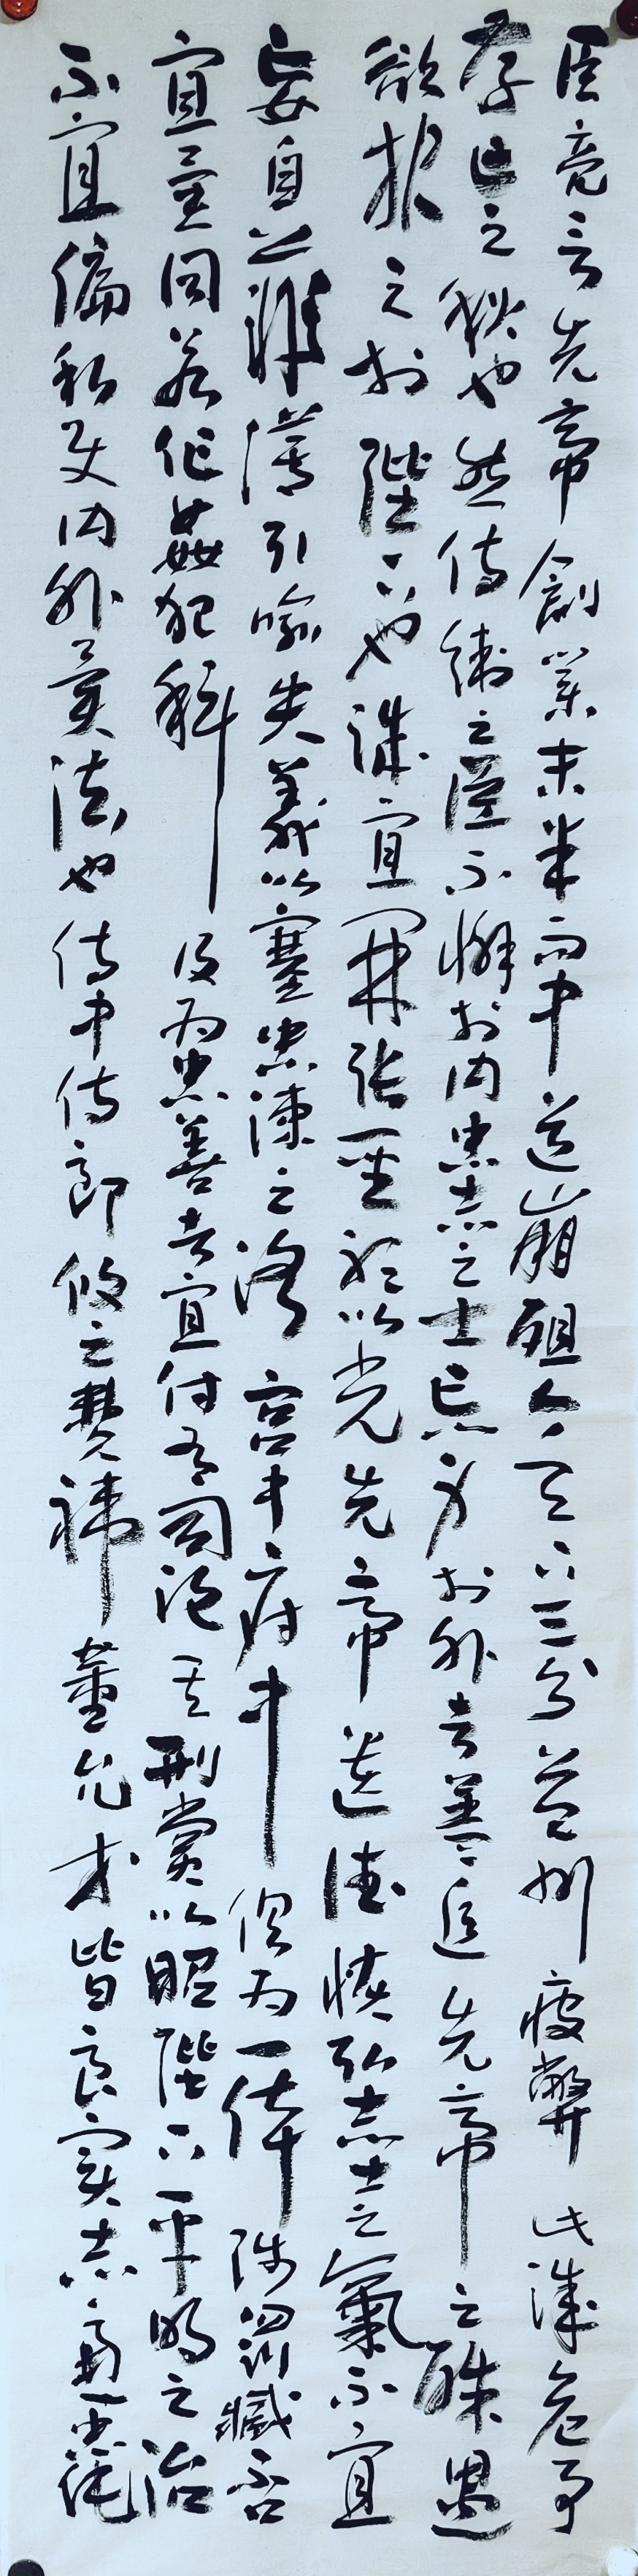 臣亮言先帝創業未半而中道崩殂今天下三分益州疲弊此誠危急
存亡之秋也然侍衛之臣不懈於內忠志之士忘身於外者蓋追先帝之殊遇
欲報之於陛下也誠宜開張聖聽以光先帝遺德恢弘志士之氣不宜
妄自菲薄引喻失義以塞忠諫之路宮中府中俱為一體陟罰臧否
宜異同若作姦犯科及為忠善者宜付有司論其刑賞以昭陛下平明之治
不宜偏私使內外異法也侍中侍郎攸之費禕董允等皆良實志慮忠純